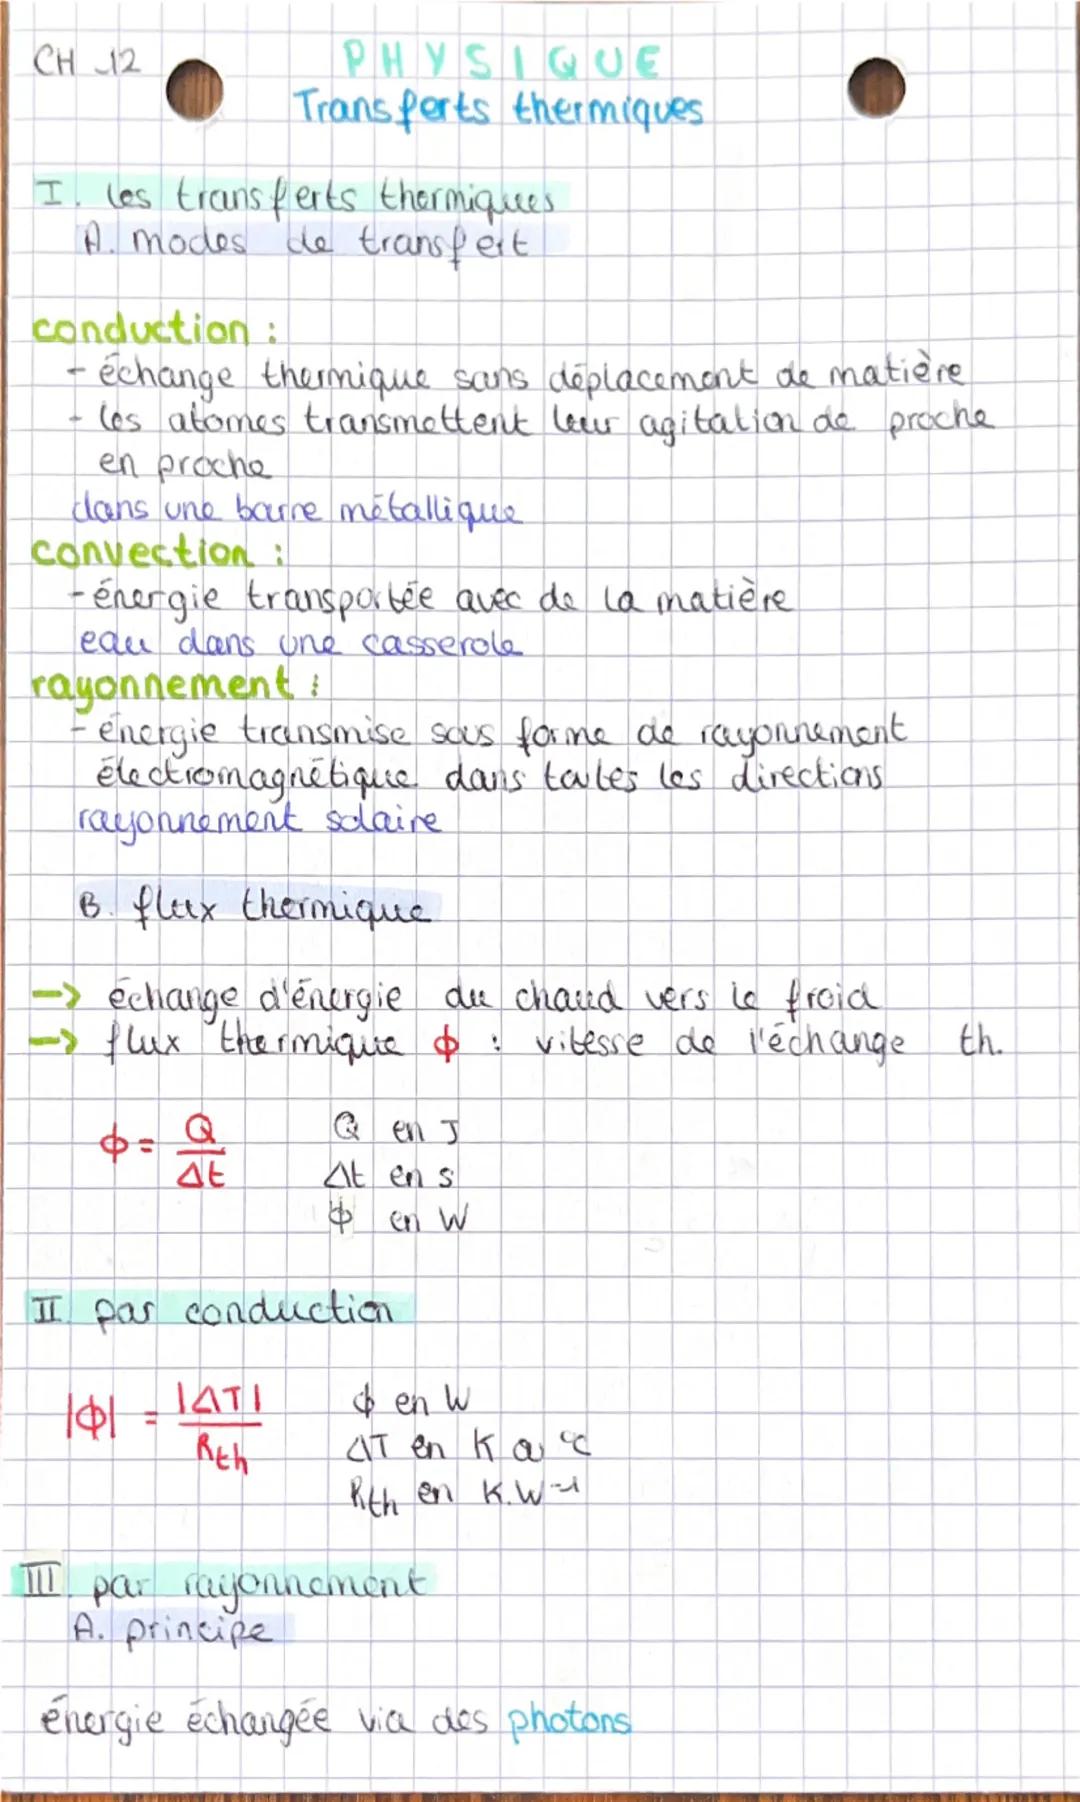 CH 12
PHYSIQUE
Transferts thermiques
I. les transferts thermiques
A. modes de transfert
conduction :
- échange thermique sans déplacement de matière
- les atomes transmettent leur agitation de proche
en proche
dans une barre métallique
convection :
- énergie transportée avec de la matière
eau dans une casserole
rayonnement :
- énergie transmise sous forme de rayonnement
électromagnétique dans toutes les directions
rayonnement solaire
B. flux thermique
→ échange d'énergie du chaud vers le froid
→ flux thermique ϕ : vitesse de l'échange th.
ϕ = Q/Δt
Q en J
Δt en s
ϕ en W
II par conduction
|ϕ| = |ΔT|/Rth
ϕ en W
ΔT en K ou °C
Rth en K.W⁻¹
III. par rayonnement
A. principe
énergie échangée via des photons